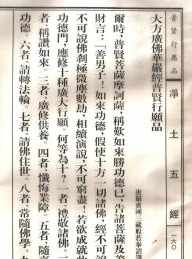 大方廣佛華嚴經普賢行願品
爾時，普賢菩薩摩訶薩，稱歎如來勝功德已，告諸菩薩及善
財言：「善男子！如來功德，假使十方一切諸佛，經不可說
不可說佛剎極微塵數劫，相續演說，不可窮盡。若欲成就此
功德門，應修十種廣大行願。何等為十？一者、禮敬諸佛。二
者、稱讚如來。三者、廣修供養。四者、懺悔業障。五者、隨喜
功德。六者、請轉法輪。七者、請佛住世。八者、常隨佛學。九
淨土五經
一六〇